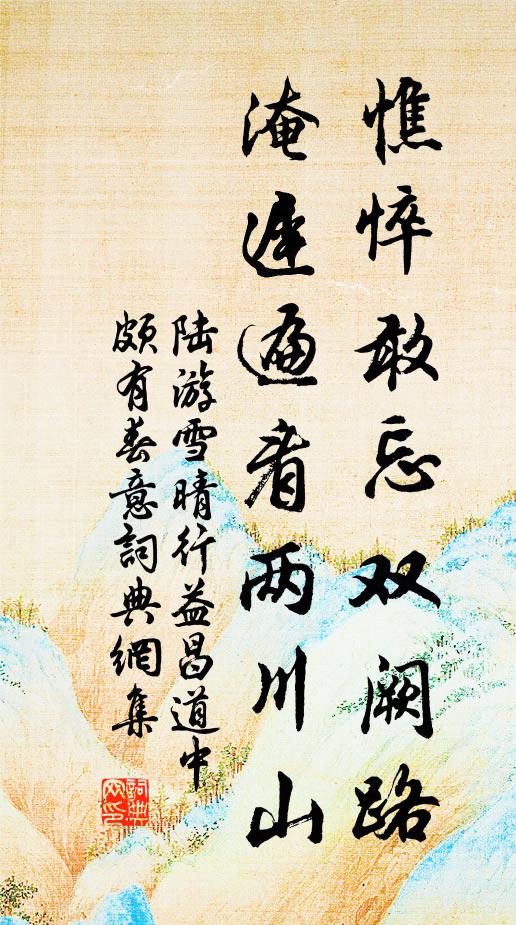 憔悴敢忘双阙路
淹迟遍看两川山
陆游雪晴行益昌道中
颇有春意詞典網集
詞典網印